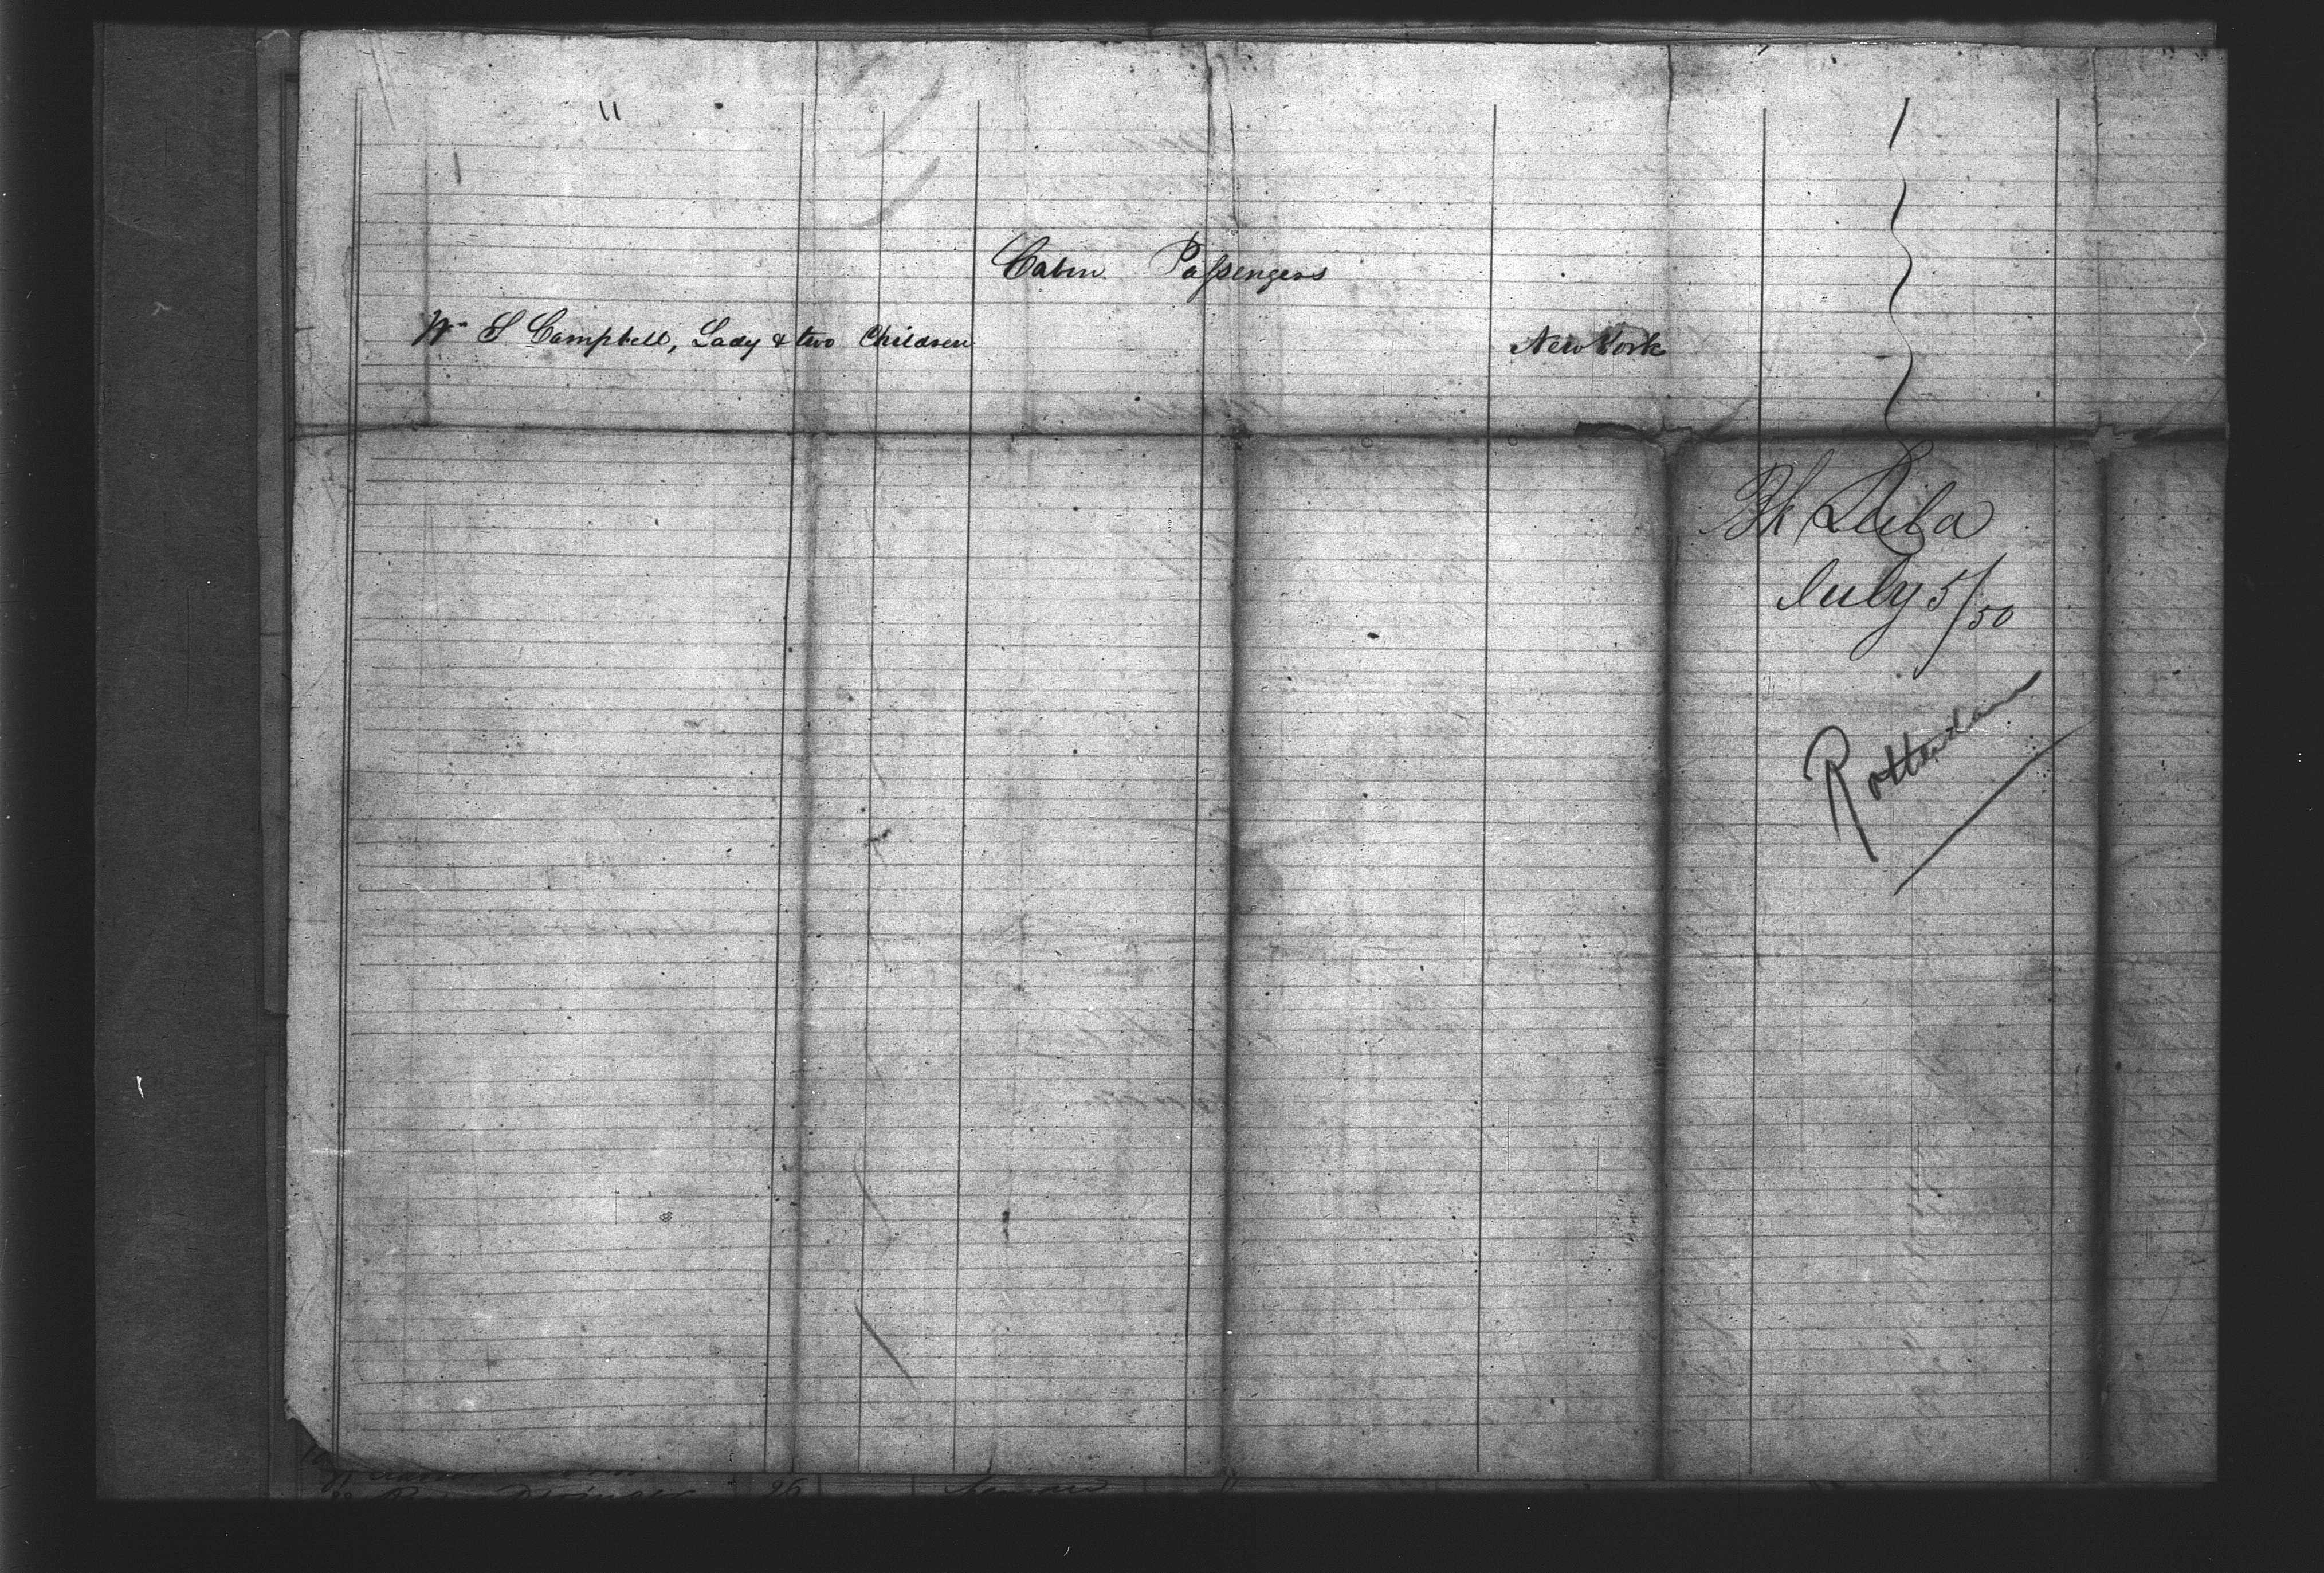 "
Cabin Passengers
Wm S Campbell, Lady & two Children New York
Bk Leila
July 5/50
Rotterdam
26